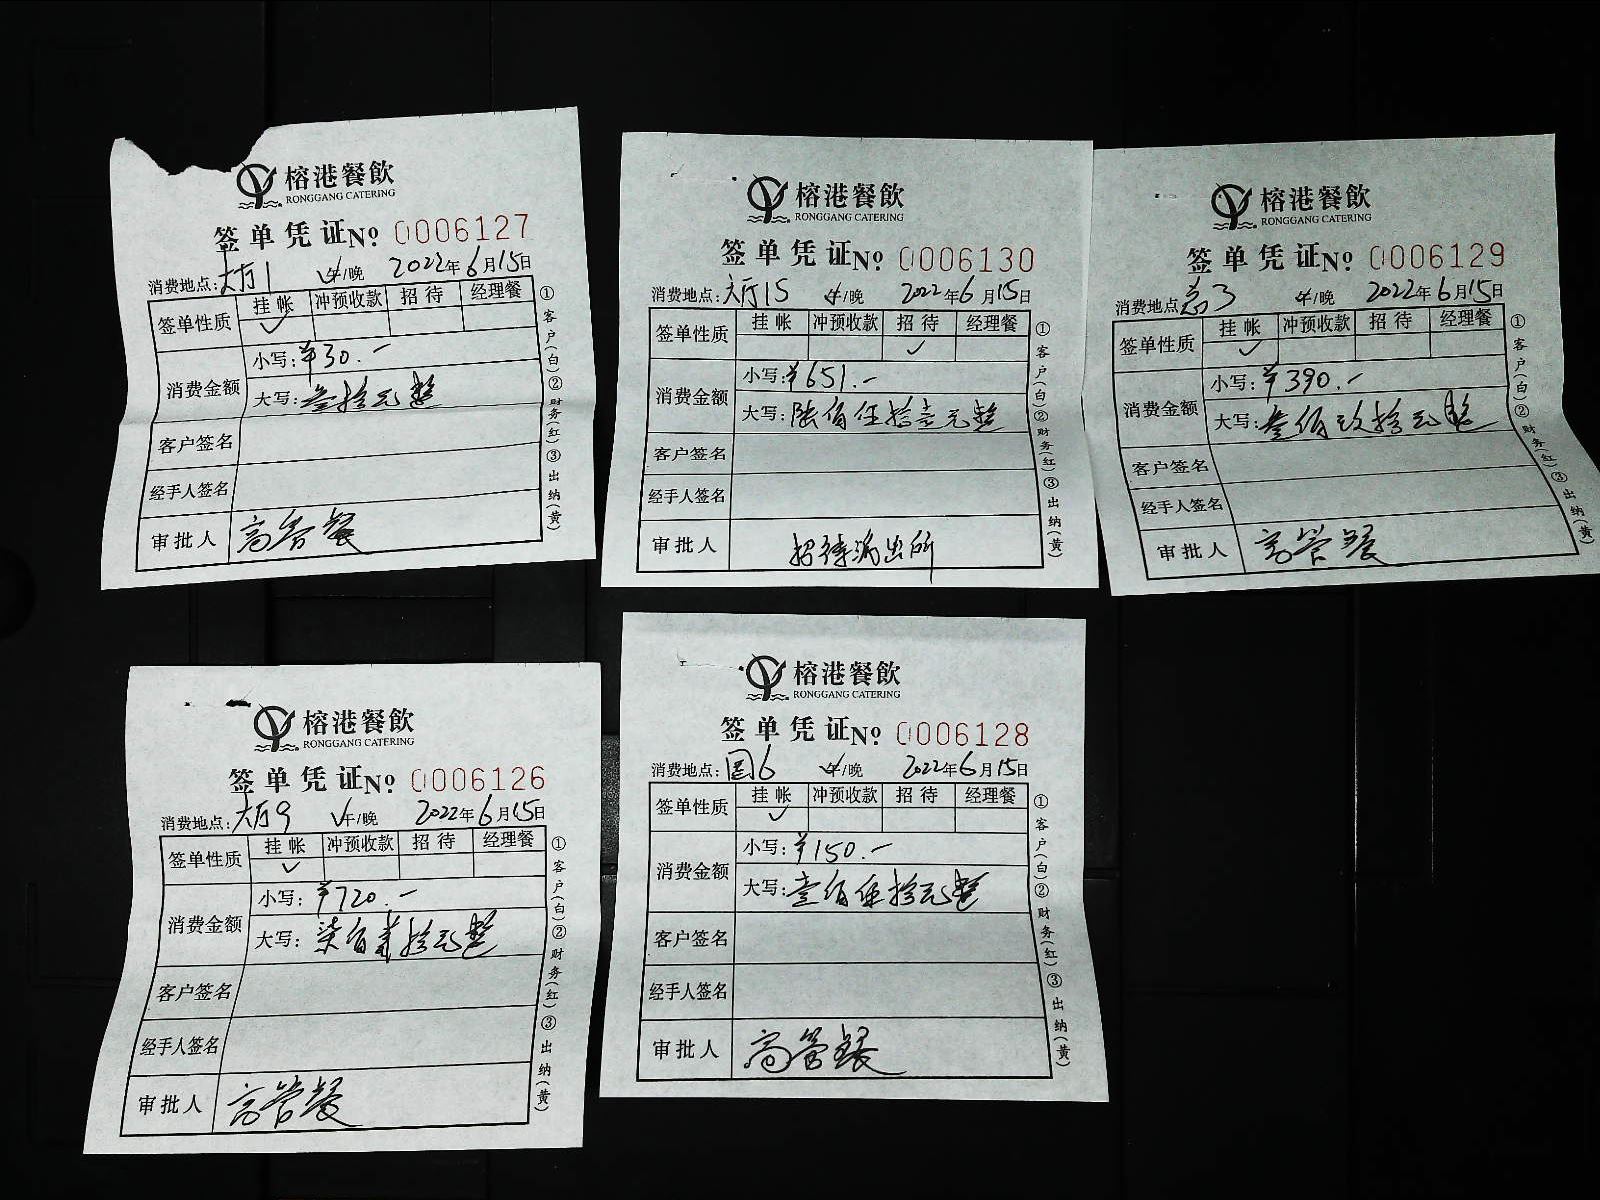 榕港餐飲
RONGGANG CATERING
签单凭证№ 0006127
消费地点:大厅1 午/晚 2022年6月15日
签单性质 挂帐 冲预收款 招待 经理餐
✓
消费金额 小写:¥30.-
大写:叁拾元整
客户签名
经手人签名
审批人 高管餐
①客户(白)②财务(红)③出纳(黄)
榕港餐飲
RONGGANG CATERING
签单凭证№ 0006130
消费地点:大厅15 午/晚 2022年6月15日
签单性质 挂帐 冲预收款 招待 经理餐
✓
消费金额 小写:¥651.-
大写:陆佰伍拾壹元整
客户签名
经手人签名
审批人 招待派出所
①客户(白)②财务(红)③出纳(黄)
榕港餐飲
RONGGANG CATERING
签单凭证№ 0006129
消费地点 3 午/晚 2022年6月15日
签单性质 挂帐 冲预收款 招待 经理餐
✓
消费金额 小写:¥390.-
大写:叁佰玖拾元整
客户签名
经手人签名
审批人 高管餐
①客户(白)②财务(红)③出纳(黄)
榕港餐飲
RONGGANG CATERING
签单凭证№ 0006126
消费地点:大厅9 午/晚 2022年6月15日
签单性质 挂帐 冲预收款 招待 经理餐
✓
消费金额 小写:¥720.-
大写:柒佰贰拾元整
客户签名
经手人签名
审批人 高管餐
①客户(白)②财务(红)③出纳(黄)
榕港餐飲
RONGGANG CATERING
签单凭证№ 0006128
消费地点: 6 午/晚 2022年6月15日
签单性质 挂帐 冲预收款 招待 经理餐
✓
消费金额 小写:¥150.-
大写:壹佰伍拾元整
客户签名
经手人签名
审批人 高管餐
①客户(白)②财务(红)③出纳(黄)